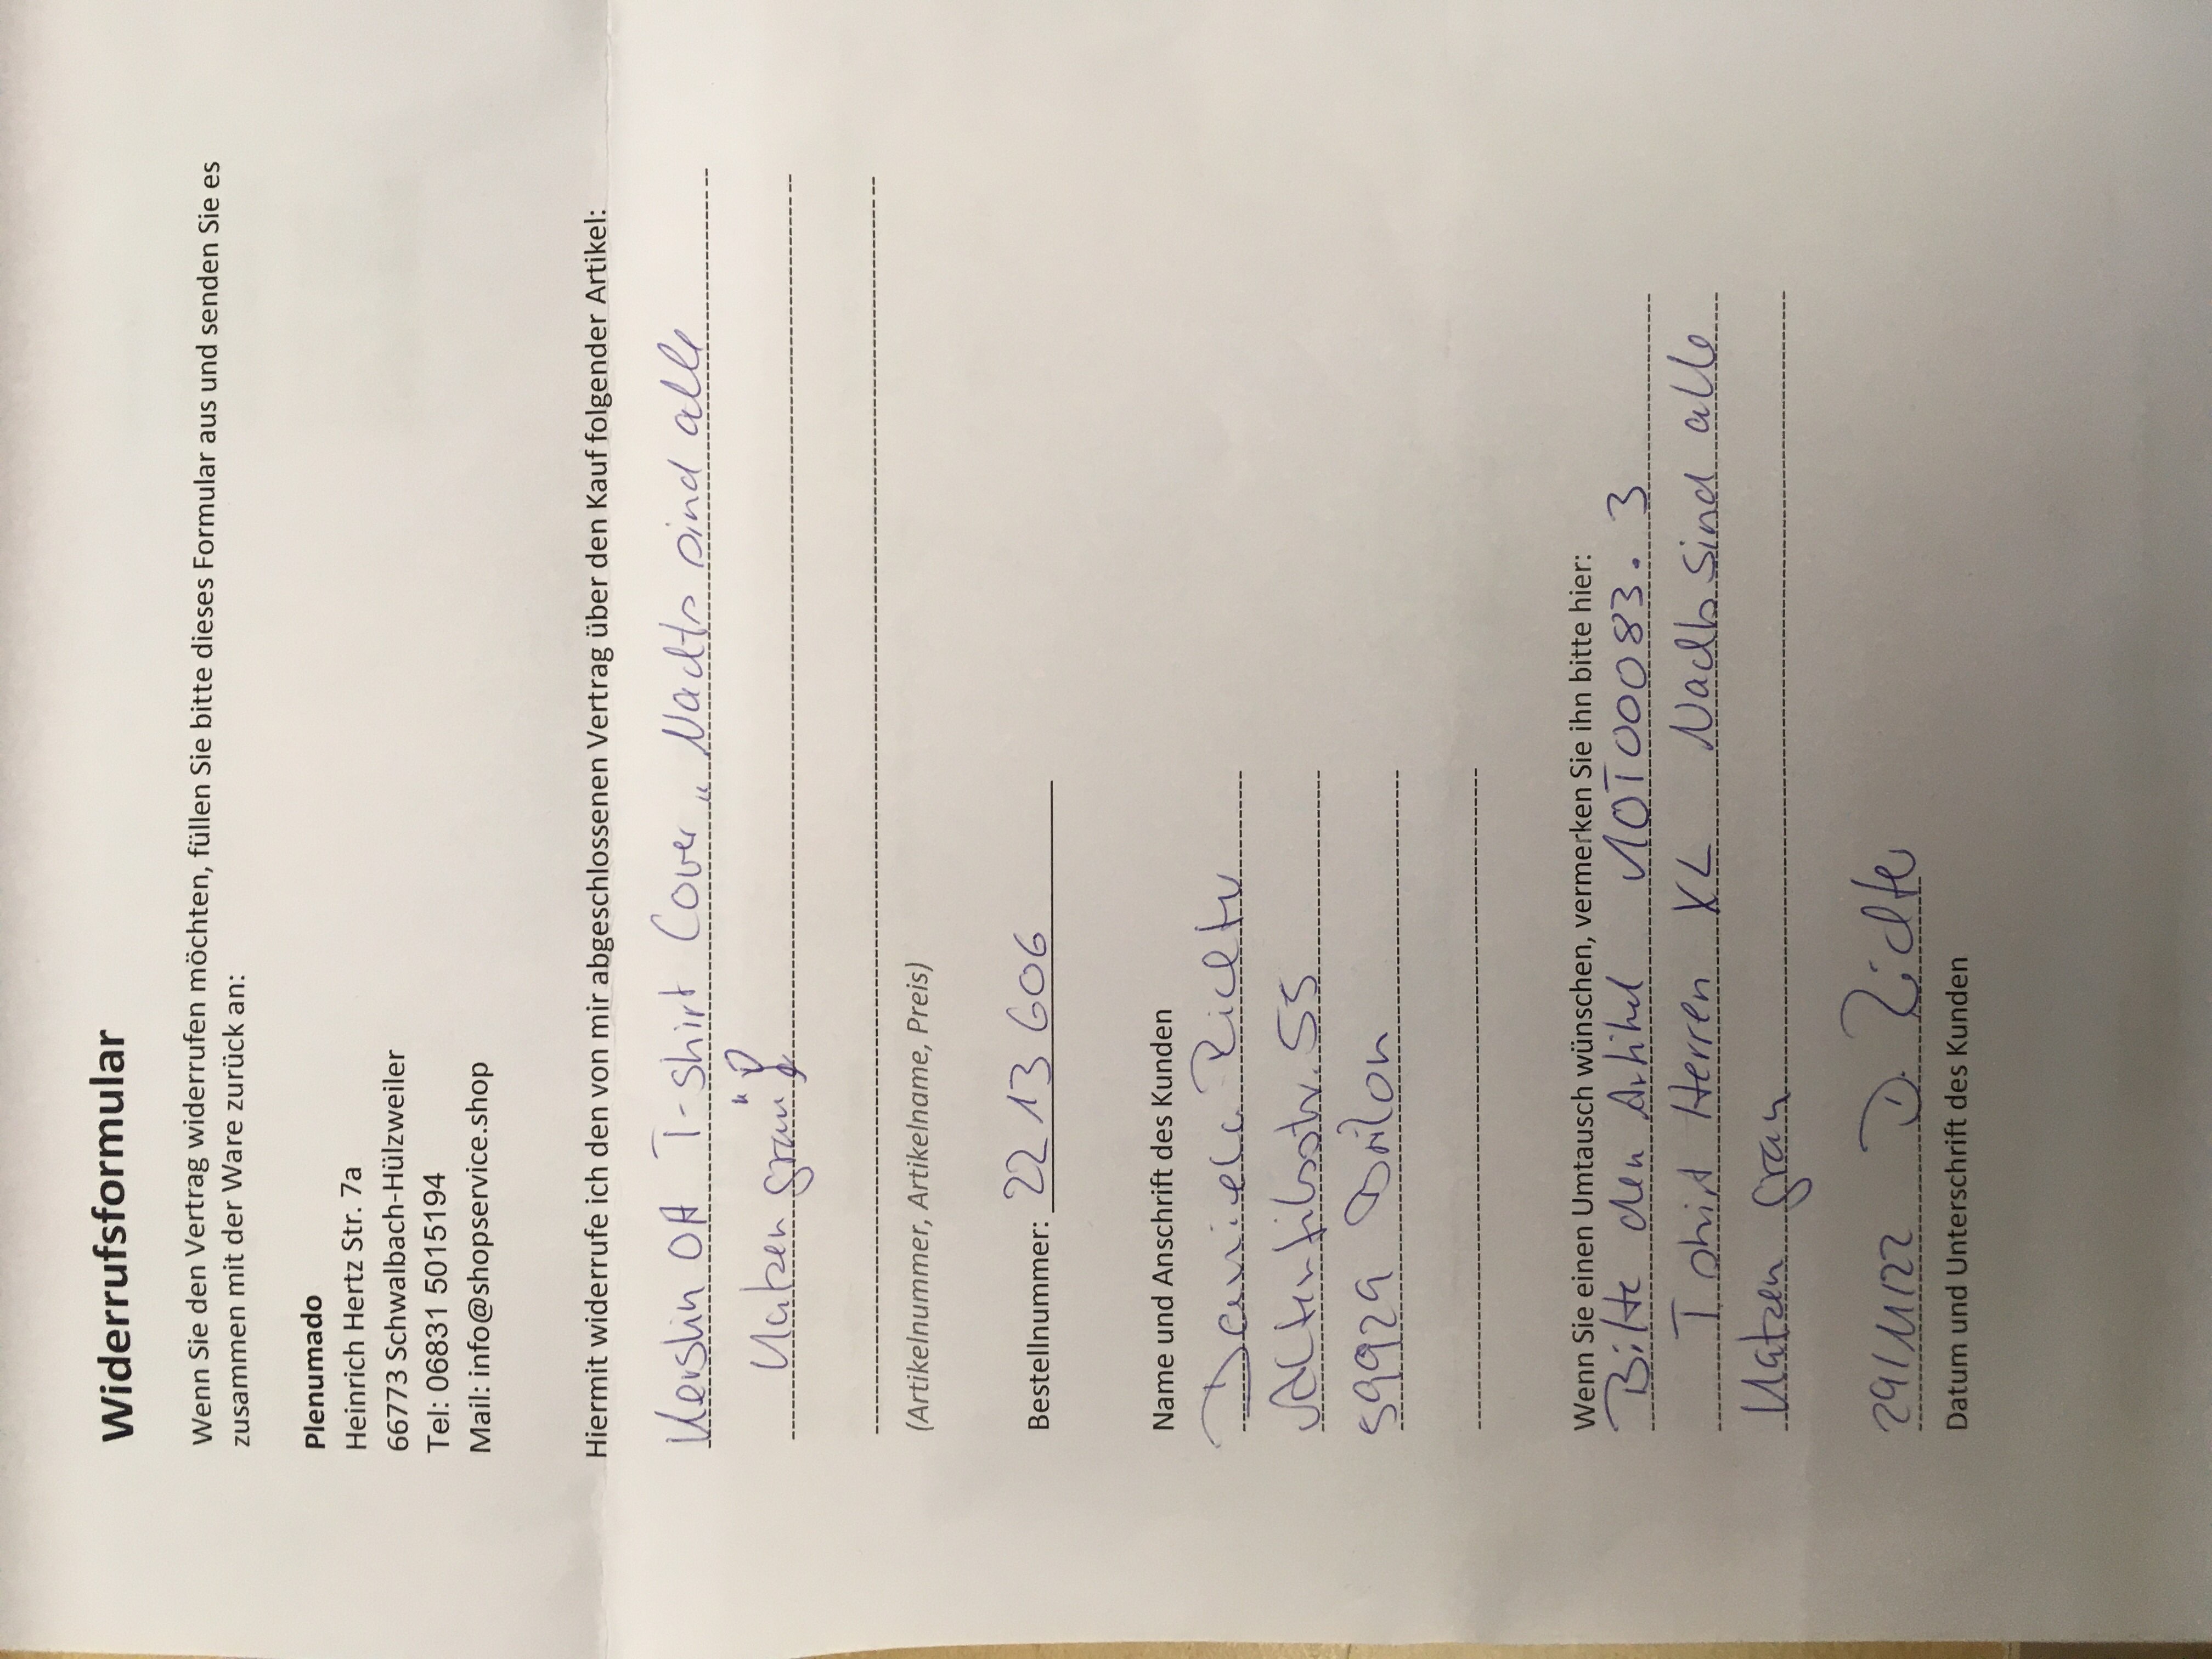 Widerrufsformular
Wenn Sie den Vertrag widerrufen möchten, füllen Sie bitte dieses Formular aus und senden Sie es
zusammen mit der Ware zurück an:
Plenumado
Heinrich Hertz Str. 7a
66773 Schwalbach-Hülzweiler
Tel: 06831 5015194
Mail: info@shopservice.shop
Hiermit widerrufe ich den von mir abgeschlossenen Vertrag über den Kauf folgender Artikel:
Kerstin Ott T-Shirt Cover „Nachts sind alle
Katzen grau"
(Artikelnummer, Artikelname, Preis)
Bestellnummer: 2213606
Name und Anschrift des Kunden
Daniela Richter
55
59929 Brilon
Wenn Sie einen Umtausch wünschen, vermerken Sie ihn bitte hier:
Bitte den Artikel 10T00083.3
T shirt Herren XL Nachts sind alle
Katzen grau
D. Richter
Datum und Unterschrift des Kunden